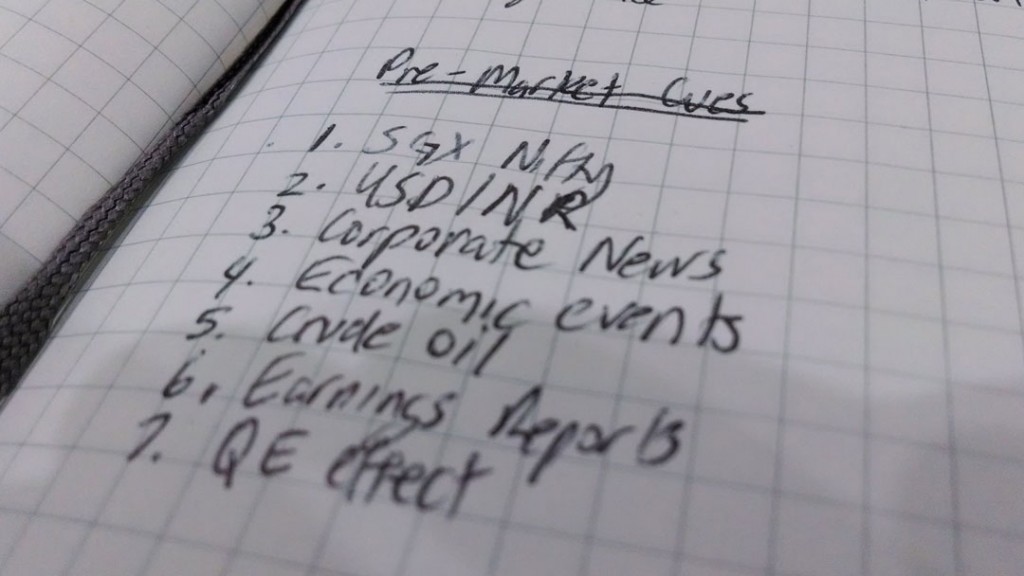 Pre-Market Cues
1. SGX Nifty
2. USDINR
3. Corporate News
4. Economic events
5. Crude oil
6. Earnings Reports
7. QE effect